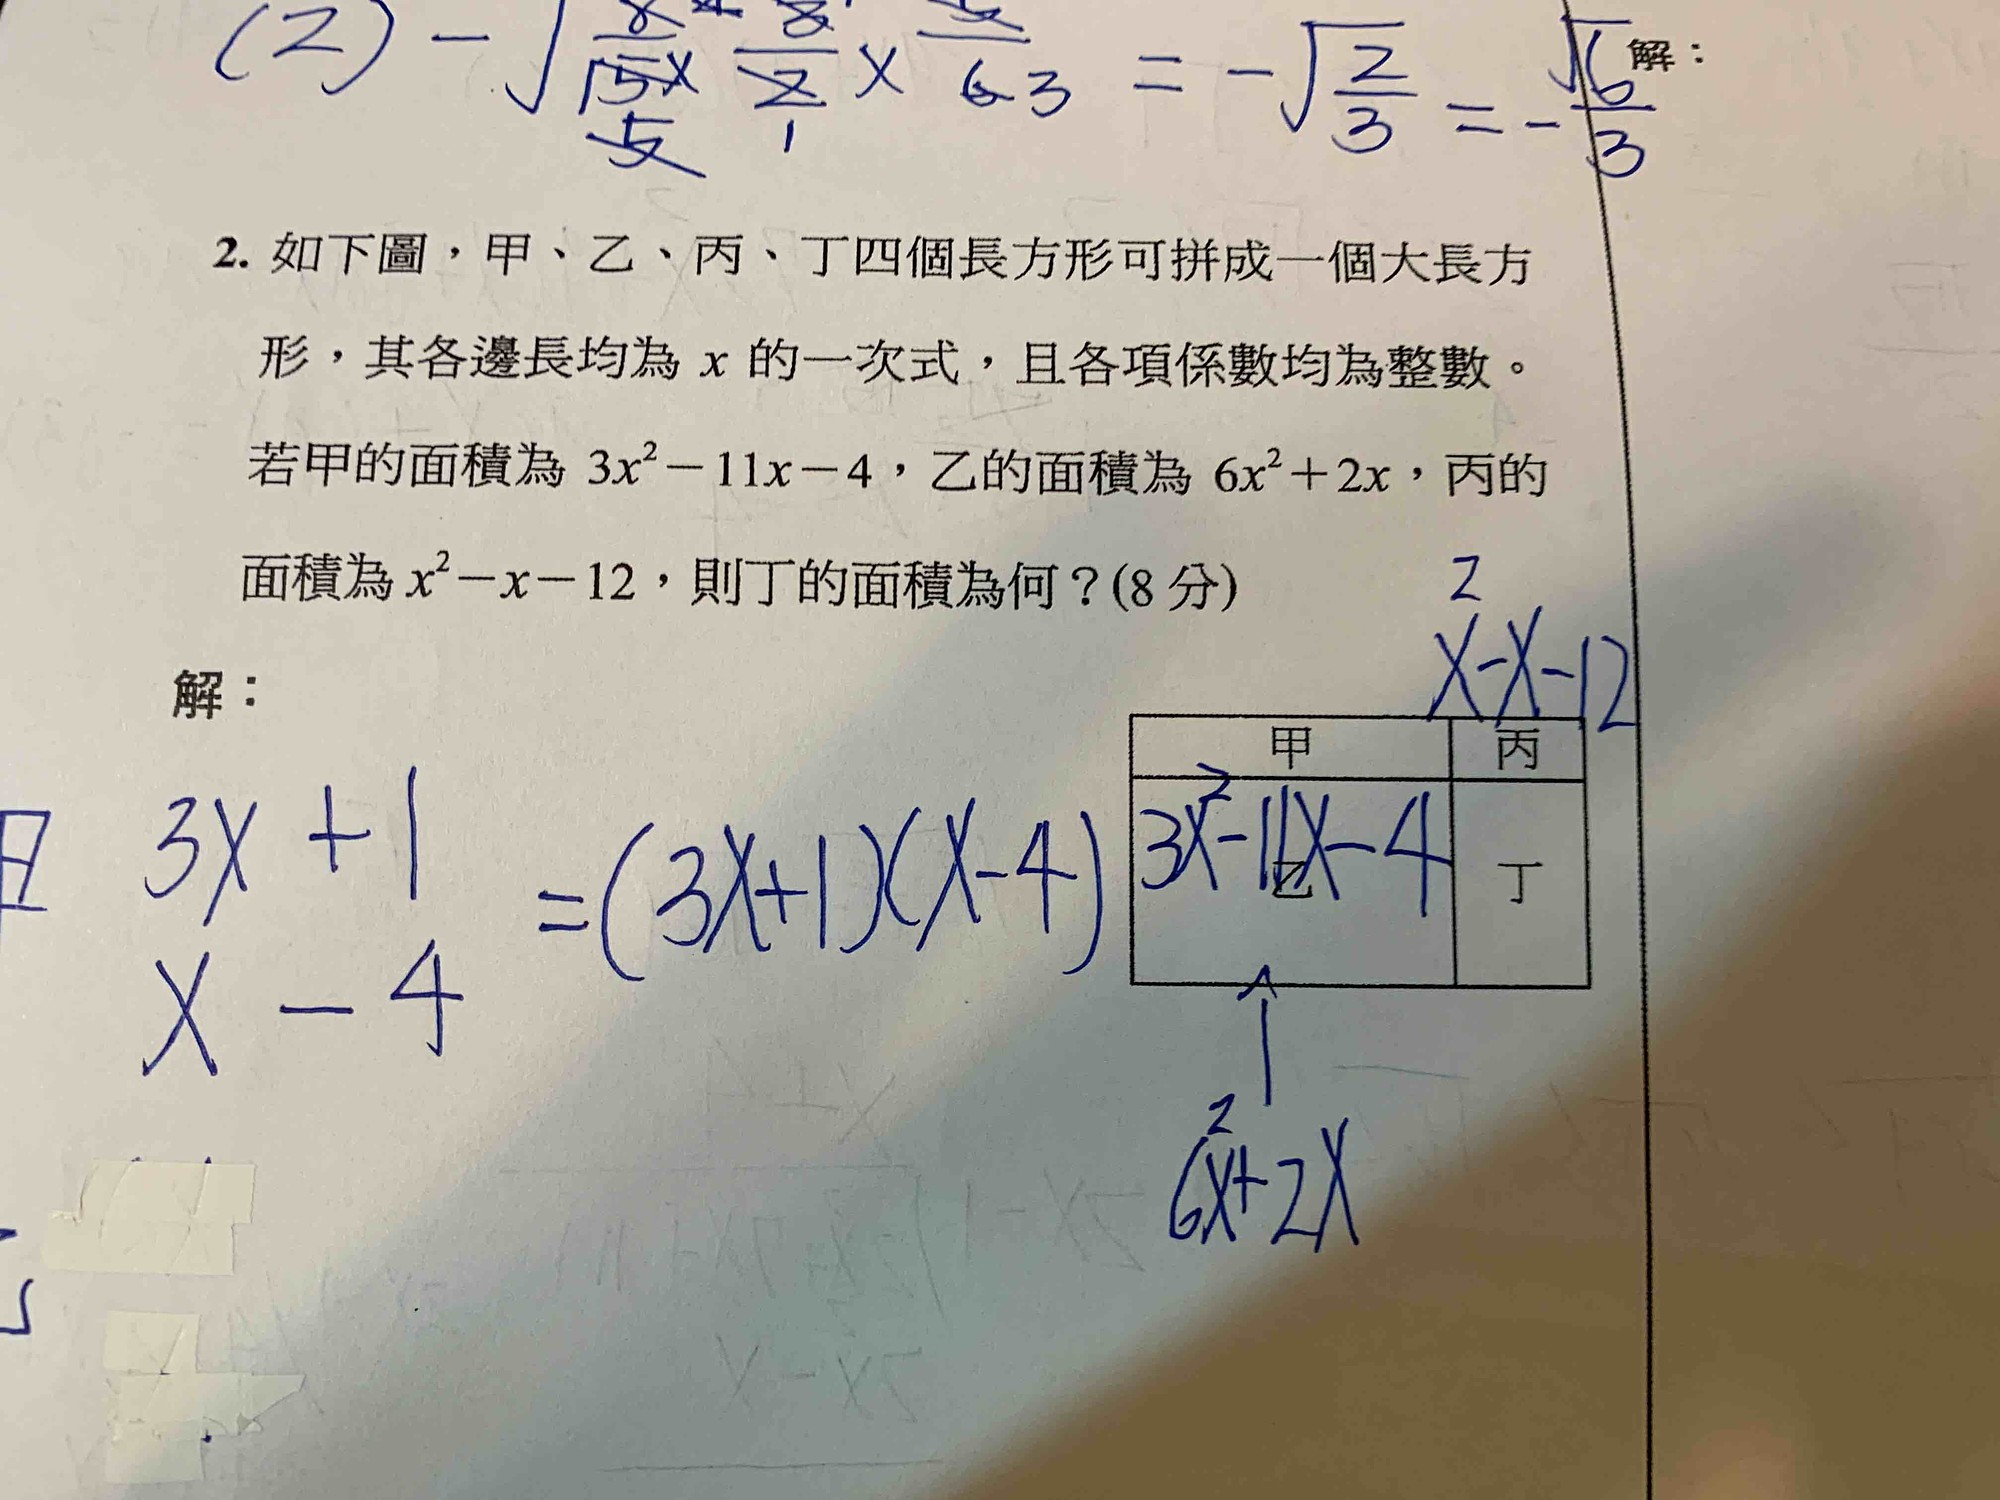 (2) -√ = -√2/3 = -√6/3
解：
2. 如下圖，甲、乙、丙、丁四個長方形可拼成一個大長方
形，其各邊長均為 x 的一次式，且各項係數均為整數。
若甲的面積為 3x²－11x－4，乙的面積為 6x²＋2x，丙的
面積為 x²－x－12，則丁的面積為何？(8 分)
解：
x²-x-12
甲 丙
甲 3x+1
x-4
=(3x+1)(x-4)
3x²-11x-4
乙 丁
6x²+2x